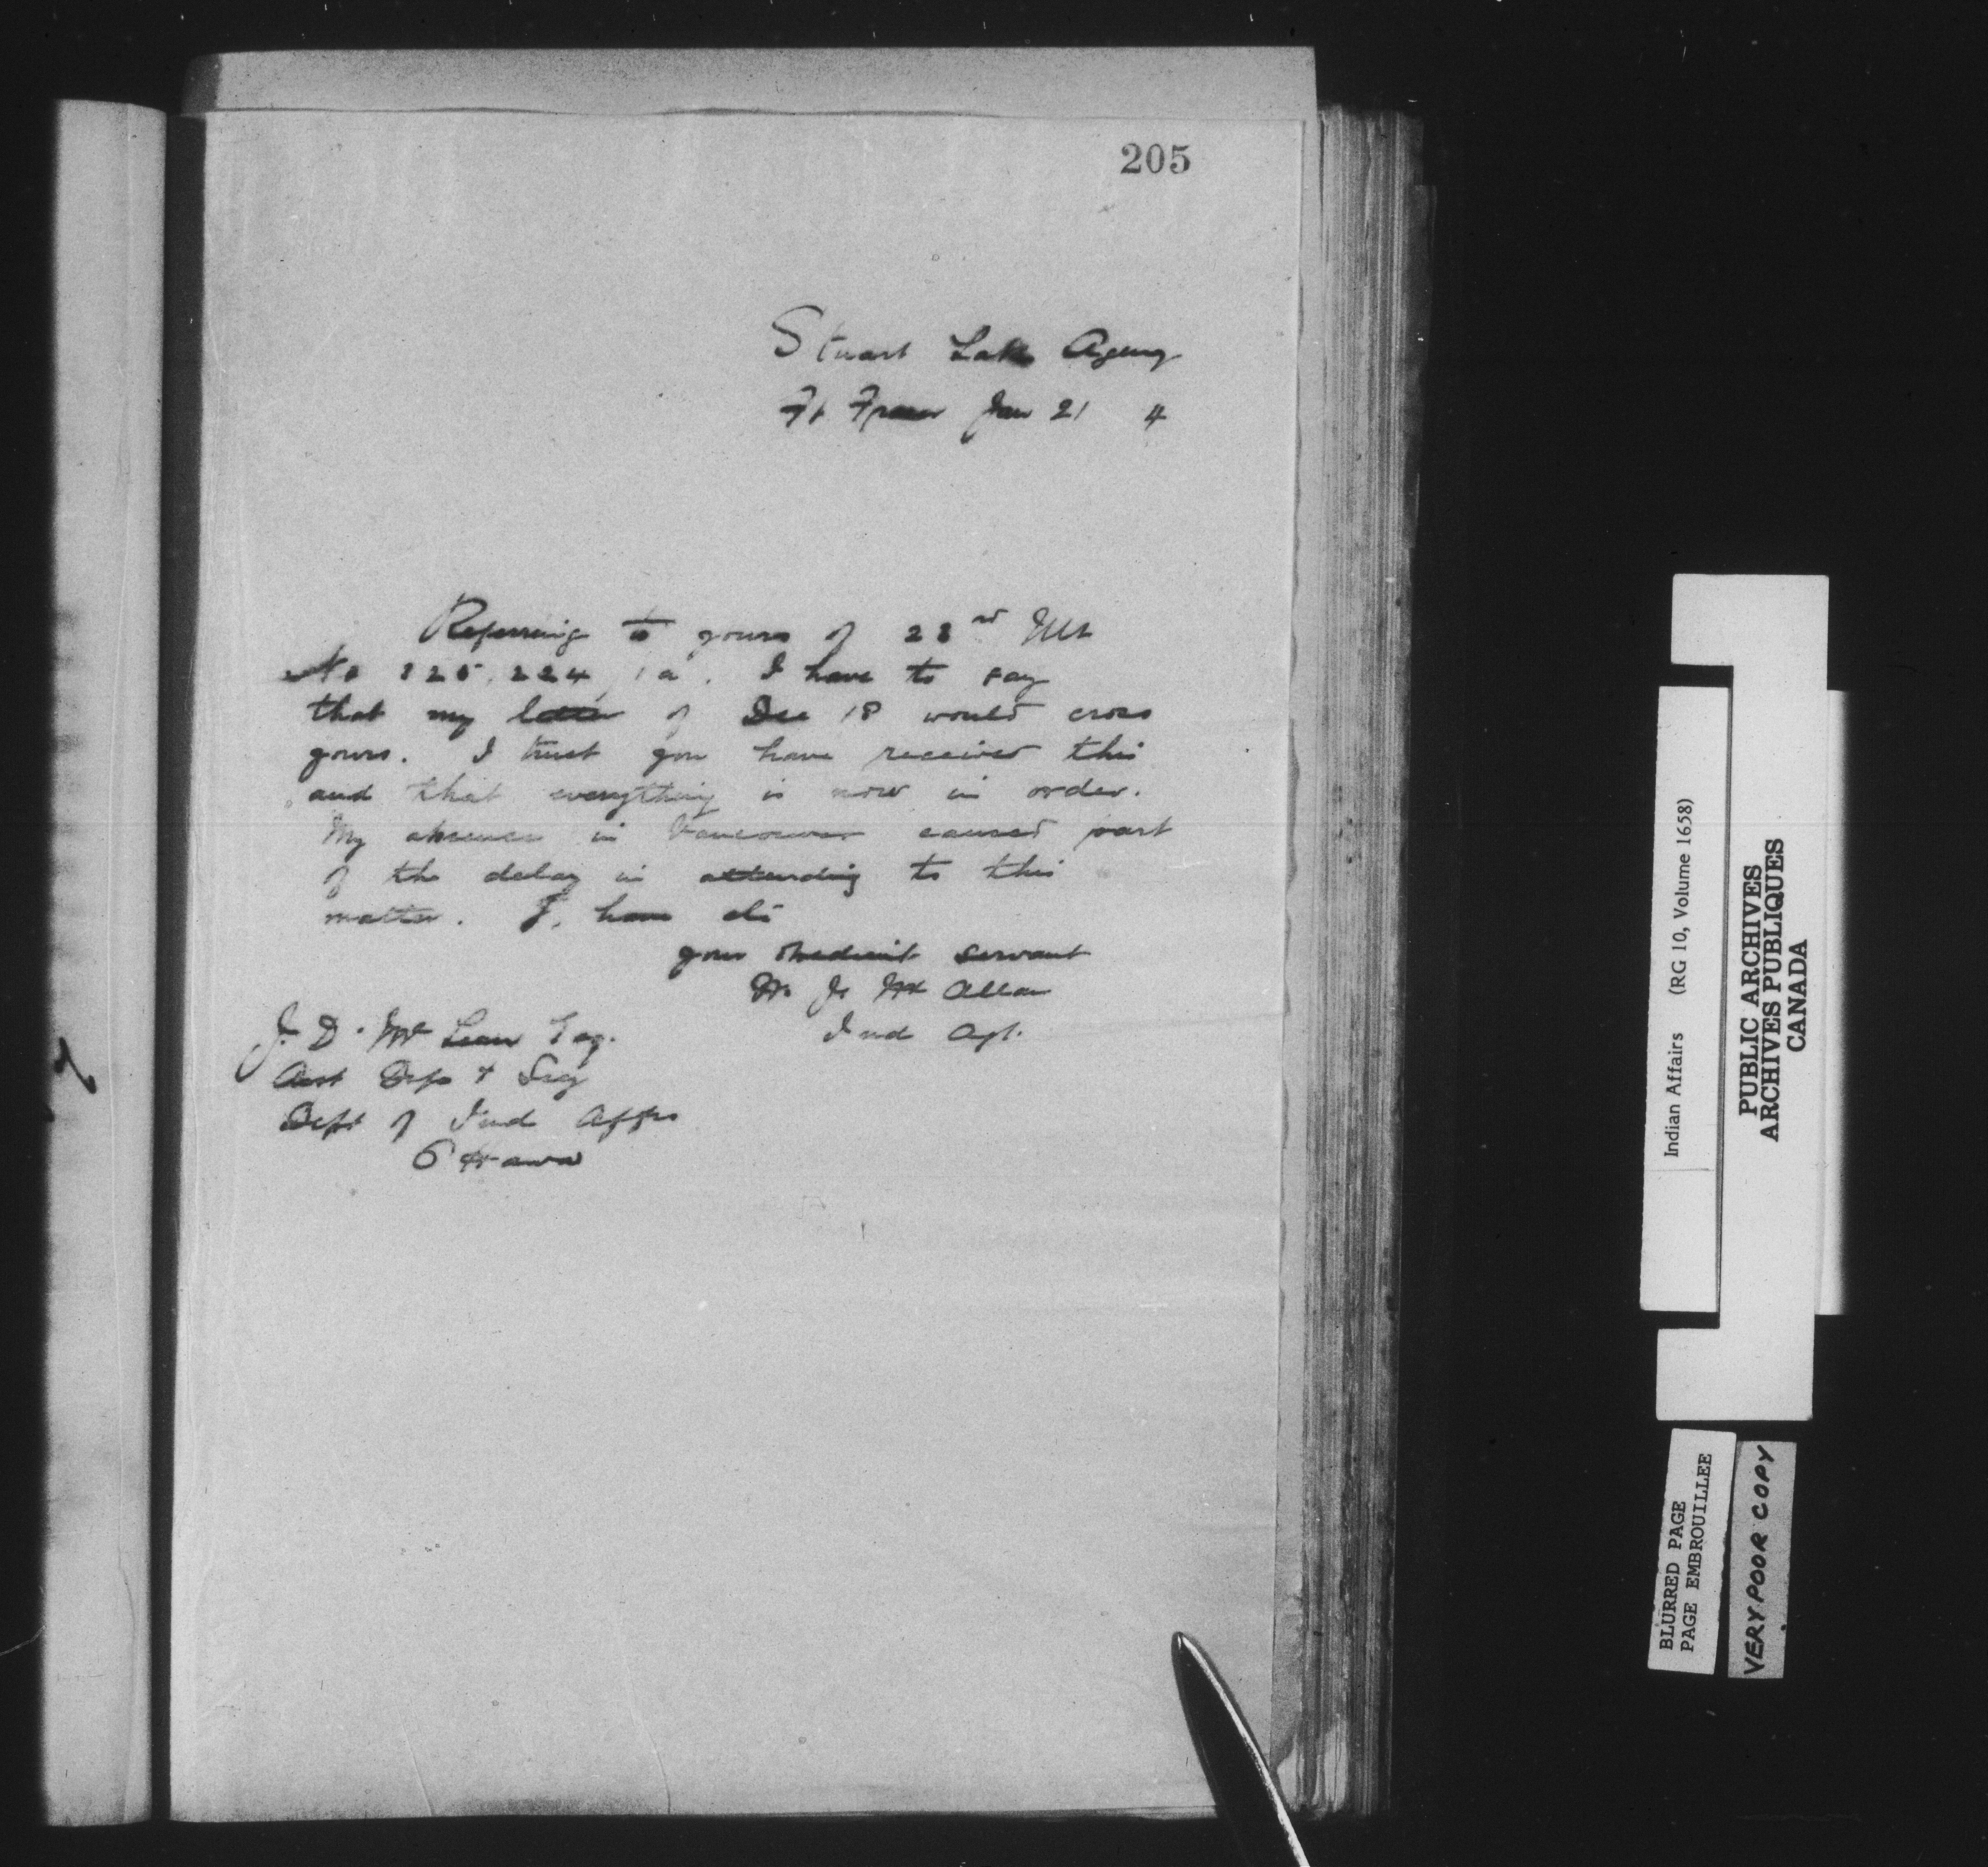 205
Stuart Lake Agency
Ft. Fraser Jan 21 4
Referring to yours of 23rd Ult
No 325,224, 1a. I have to say
that my letter of Dec 18 would cross
yours. I trust you have received this
and that everything is now in order.
My absence in Vancouver caused part
of the delay in attending to this
matter. I have etc
your obedient servant
W. J. Mc Allan
Ind Agt.
J. D. Mc Lean Esq.
Asst Dep & Secy
Dept of Ind Affrs
Ottawa
Indian Affairs (RG 10, Volume 1658)
PUBLIC ARCHIVES
ARCHIVES PUBLIQUES
CANADA
BLURRED PAGE
PAGE EMBROUILLEE
VERY POOR COPY